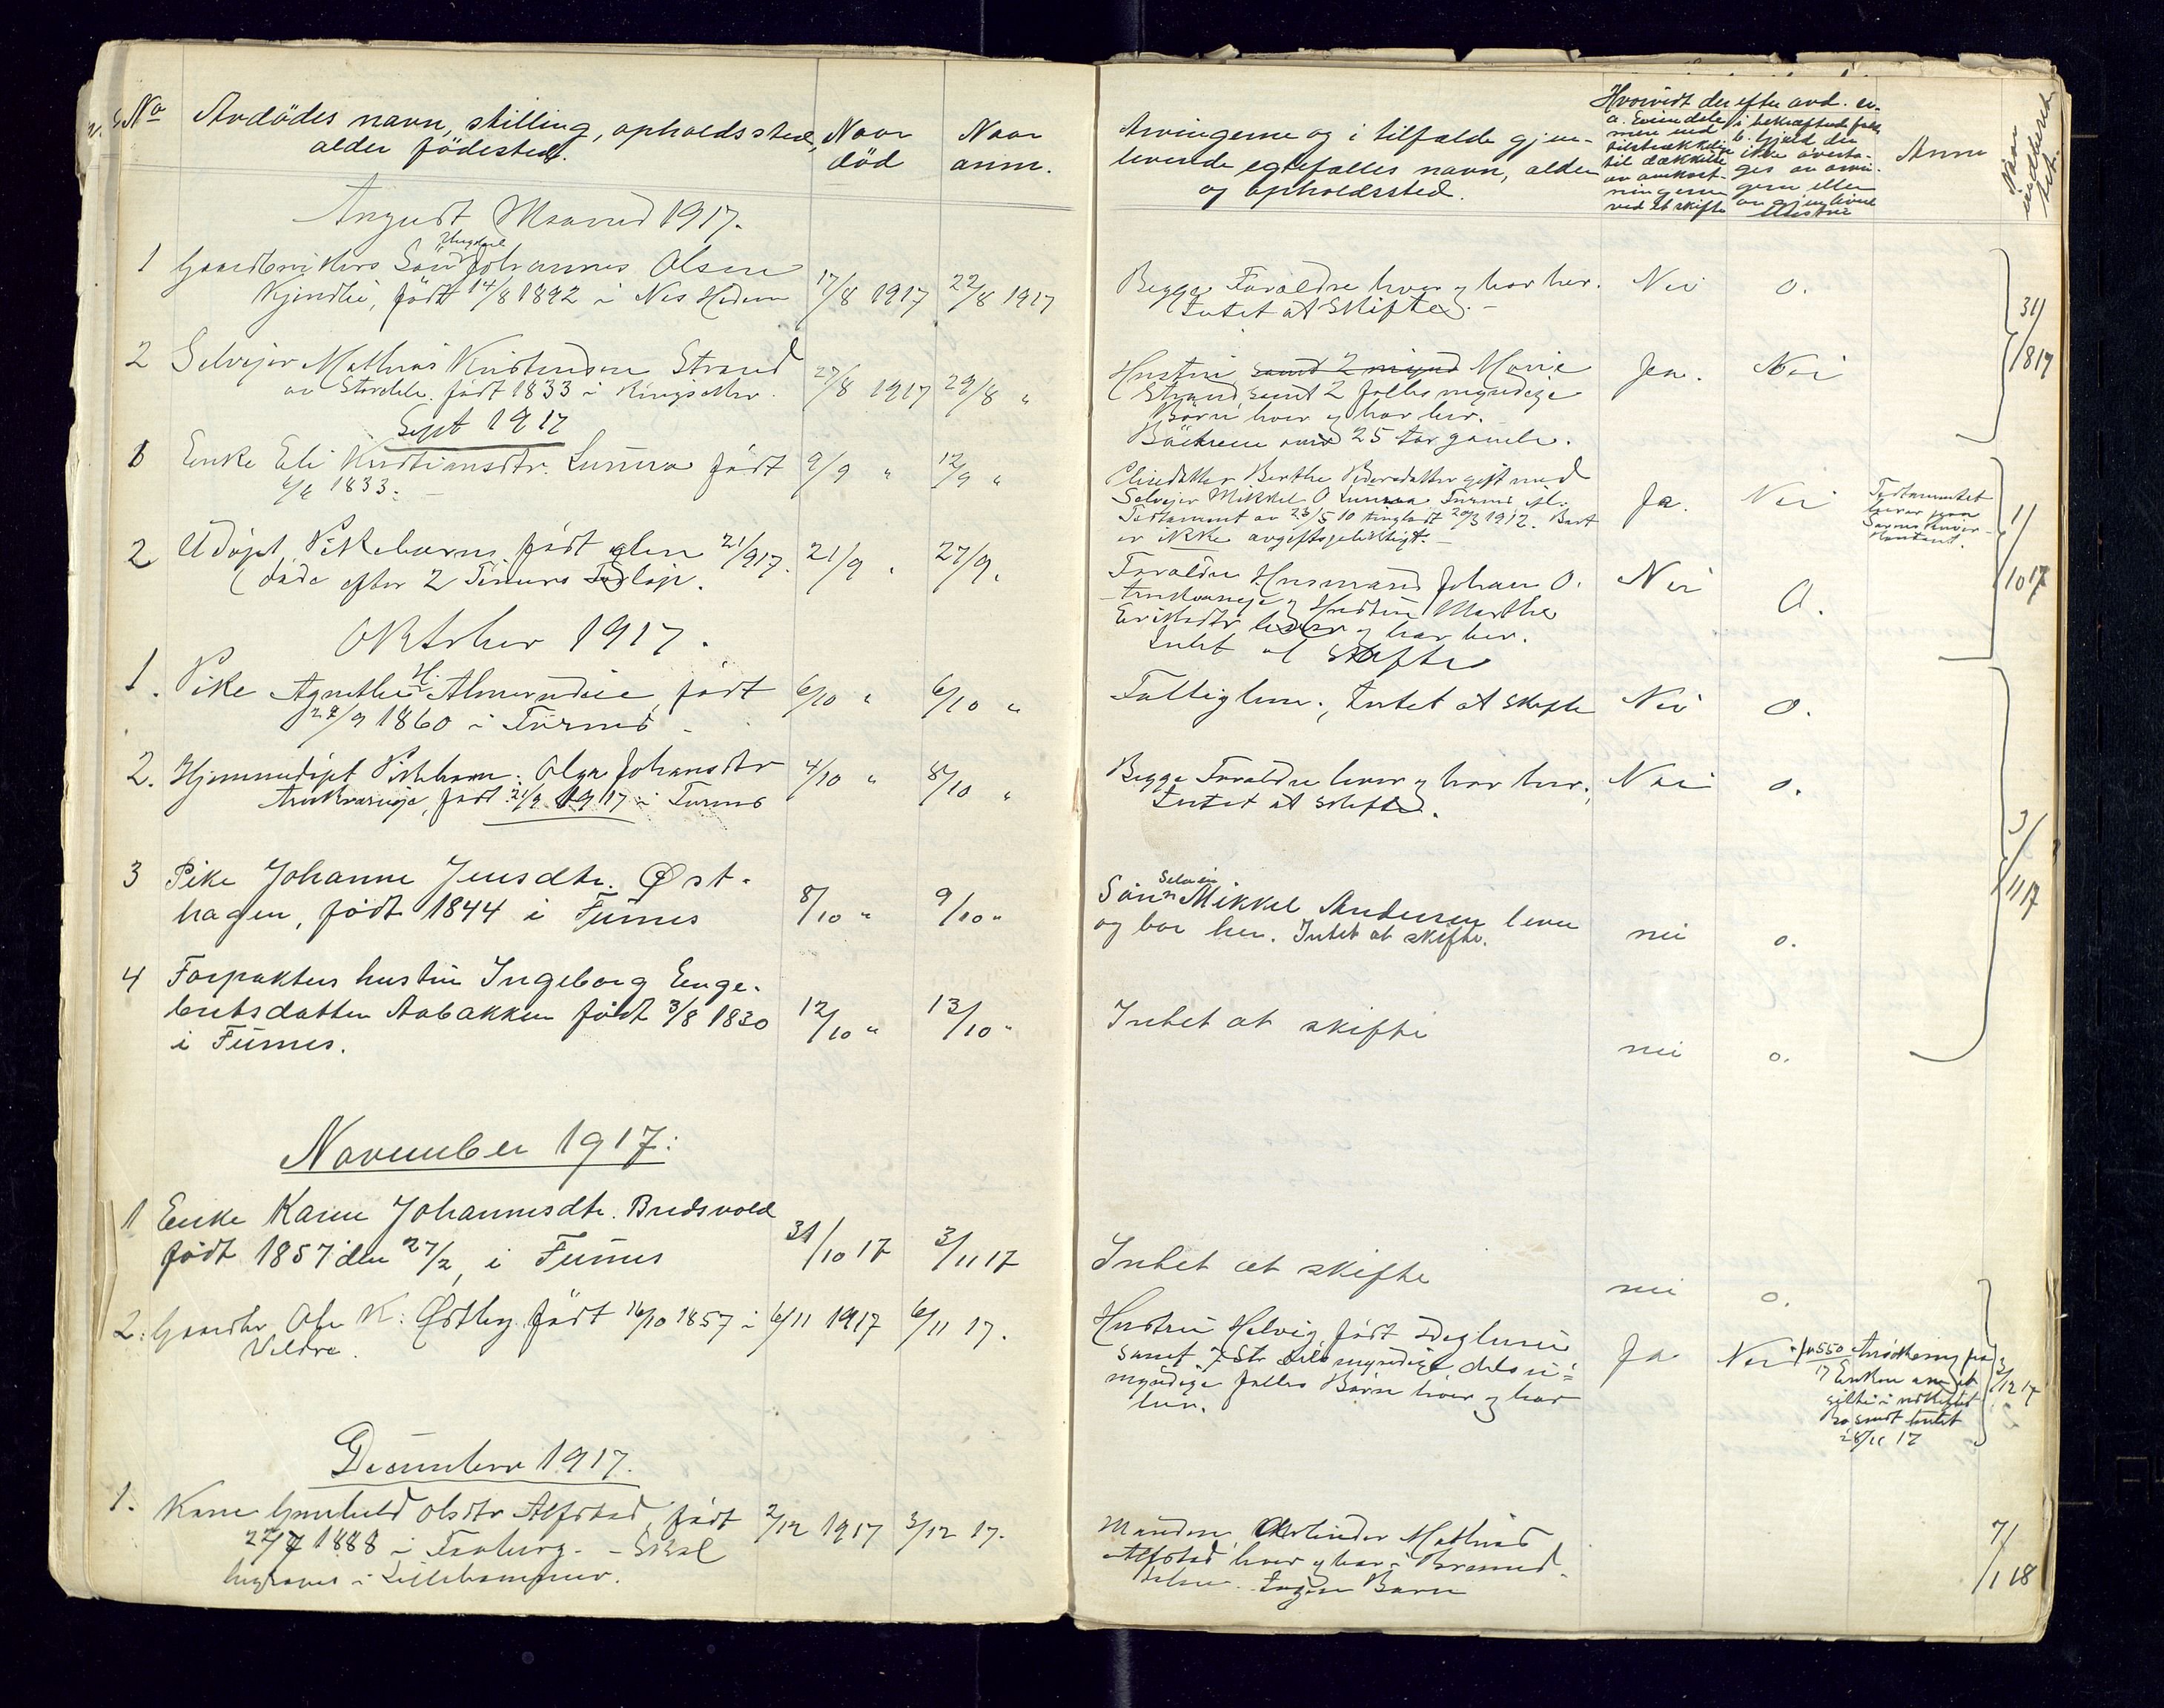 No Avdödes navn, stilling, opholdssted,
alder fødested.
Naar
död
Naar
anm.
Arvingerne og i tilfælde gjen-
levende egtefælles navn, alder
og opholdssted.
Hvorvidt der efter avd. er
a. Eiendele
men ued
tilstrækkelig
til dækkelse
av omkost-
ningerne
ved et skifte
i bekræftende fald
b. Gjæld, der
ikke overta-
ges av arvin-
gerne eller
Anm
Naar
indberet-
tet.
August Maaned 1917.
1 Gaardbrukers Sön Ungkarl Johannes Olsen
født 14/8 1892 i Nes Hedem
17/8 1917 22/8 1917
Begge Forældre lever og bor her.
Intet at Skifte. -
Nei 0.
31/8 17
2 Selveier Mathias Kristensen Strand
født 1833 i Ringsaker.
27/8 1917 29/8 "
Hustru samt 2 Marie
Strand samt 2 fælles myndige
Börn lever og bor her.
over 25 Aar gamle.
Jea. Nei
Sept 1917
1 Enke Eli Kristiansdtr. Lunna født
1833. -
9/9 " 12/9 "
Berthe Pedersdatter gift med
Selveier Mikkel O Furnes
Testament av 23/5 10 tinglæst 1912. Boet
er ikke avgiftspligtigt. -
Ja. Nei
Testamentet
1/10 17
2 Udöpt Pikebarn, født den 21/9 17.
(døde efter 2 Timers Forløp.
21/9 " 27/9 "
Forældre Husmand Johan O.
og Hustru Marthe
Eriksdtr lever og bor her.
Intet at Skifte
Nei 0.
Oktober 1917.
1. Pike Agnethe H. født
27/9 1860 i Furnes -
6/10 " 6/10 "
Fattiglem., Intet at skifte
Nei 0.
2. Hjemmedöpt Pikebarn. Olga Johansdtr
født 21/9 1917 i Furnes
4/10 " 8/10 "
Begge Forældre lever og bor her.,
Intet at skifte.
Nei 0.
3 Pike Johanne Jensdtr. Øst-
hagen, født 1844 i Furnes
8/10 " 9/10 "
Sönn Selveier Mikkel Andersen lever
og bor her. Intet at skifte.
nei 0.
3/11 17
4 Forpakters hustru Ingeborg Enge-
bretsdatter Aabakken født 3/8 1830
i Furnes.
12/10 " 13/10 "
Intet at skifte
nei 0.
November 1917:
1 Enke Karen Johannesdtr. Bredsvold
født 1857 den 27/2, i Furnes
31/10 17 3/11 17
Intet at skifte
nei 0.
2. Gaardbr Ole K. Østby født 16/10 1857 i
Veldre.
6/11 1917 6/11 17.
Hustru Helvig, født
samt 7 Stk dels myndige, dels u=
myndige fælles Børn lever og bor
her.
Ja Nei
Ansökning fra
Enken om at
sitte i uskiftet
Bo sendt
28/11 17
3/12 17
December 1917.
1. Kone Gunhild Olsdtr Alfstad, født
22/7 1888 i Faaberg. - Skal
begraves i Lillehammer.
2/12 1917 3/12 17.
Manden, Arbeider Mathias
Alfstad lever og bor i Brumund-
dalen. Ingen Barn
7/1 18